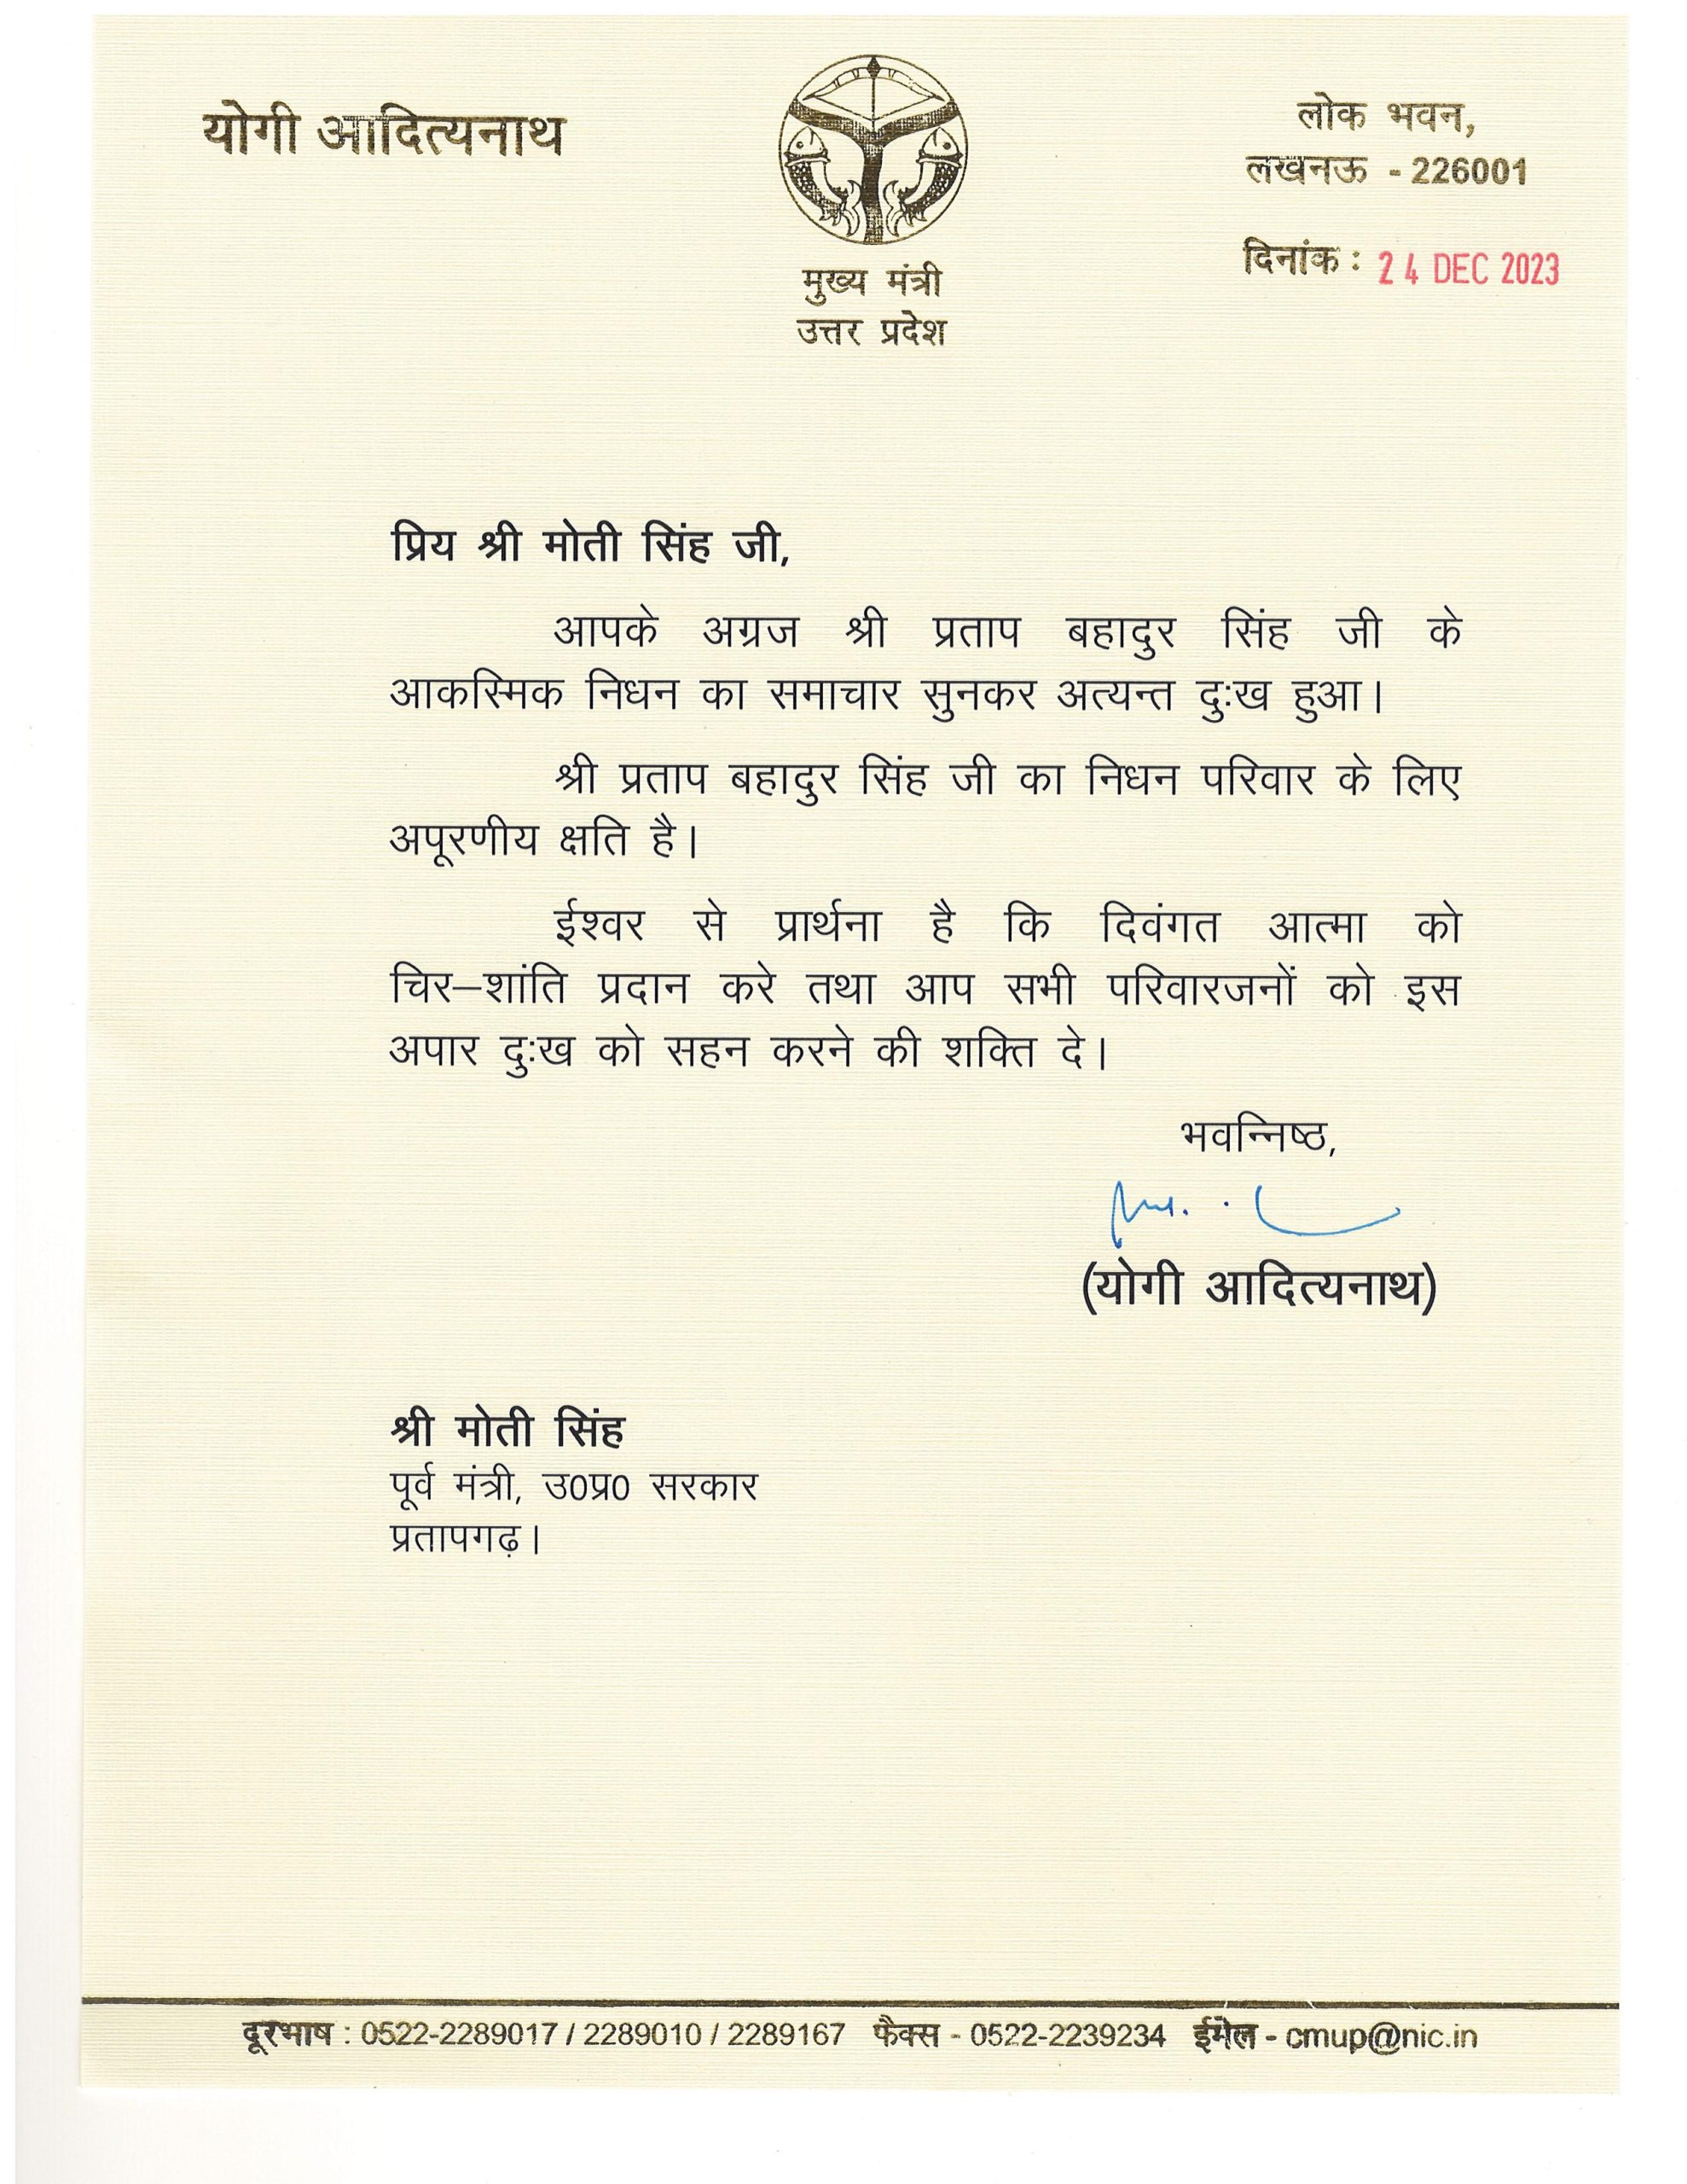 योगी आदित्यनाथ
मुख्य मंत्री
उत्तर प्रदेश
लोक भवन,
लखनऊ - 226001
दिनांक : 24 DEC 2023
प्रिय श्री मोती सिंह जी,
आपके अग्रज श्री प्रताप बहादुर सिंह जी के
आकस्मिक निधन का समाचार सुनकर अत्यन्त दुःख हुआ।
श्री प्रताप बहादुर सिंह जी का निधन परिवार के लिए
अपूरणीय क्षति है।
ईश्वर से प्रार्थना है कि दिवंगत आत्मा को
चिर–शांति प्रदान करे तथा आप सभी परिवारजनों को इस
अपार दुःख को सहन करने की शक्ति दे।
भवन्निष्ठ,
(योगी आदित्यनाथ)
श्री मोती सिंह
पूर्व मंत्री, उ0प्र0 सरकार
प्रतापगढ़।
दूरभाष : 0522-2289017 / 2289010 / 2289167 फैक्स - 0522-2239234 ईमेल - cmup@nic.in